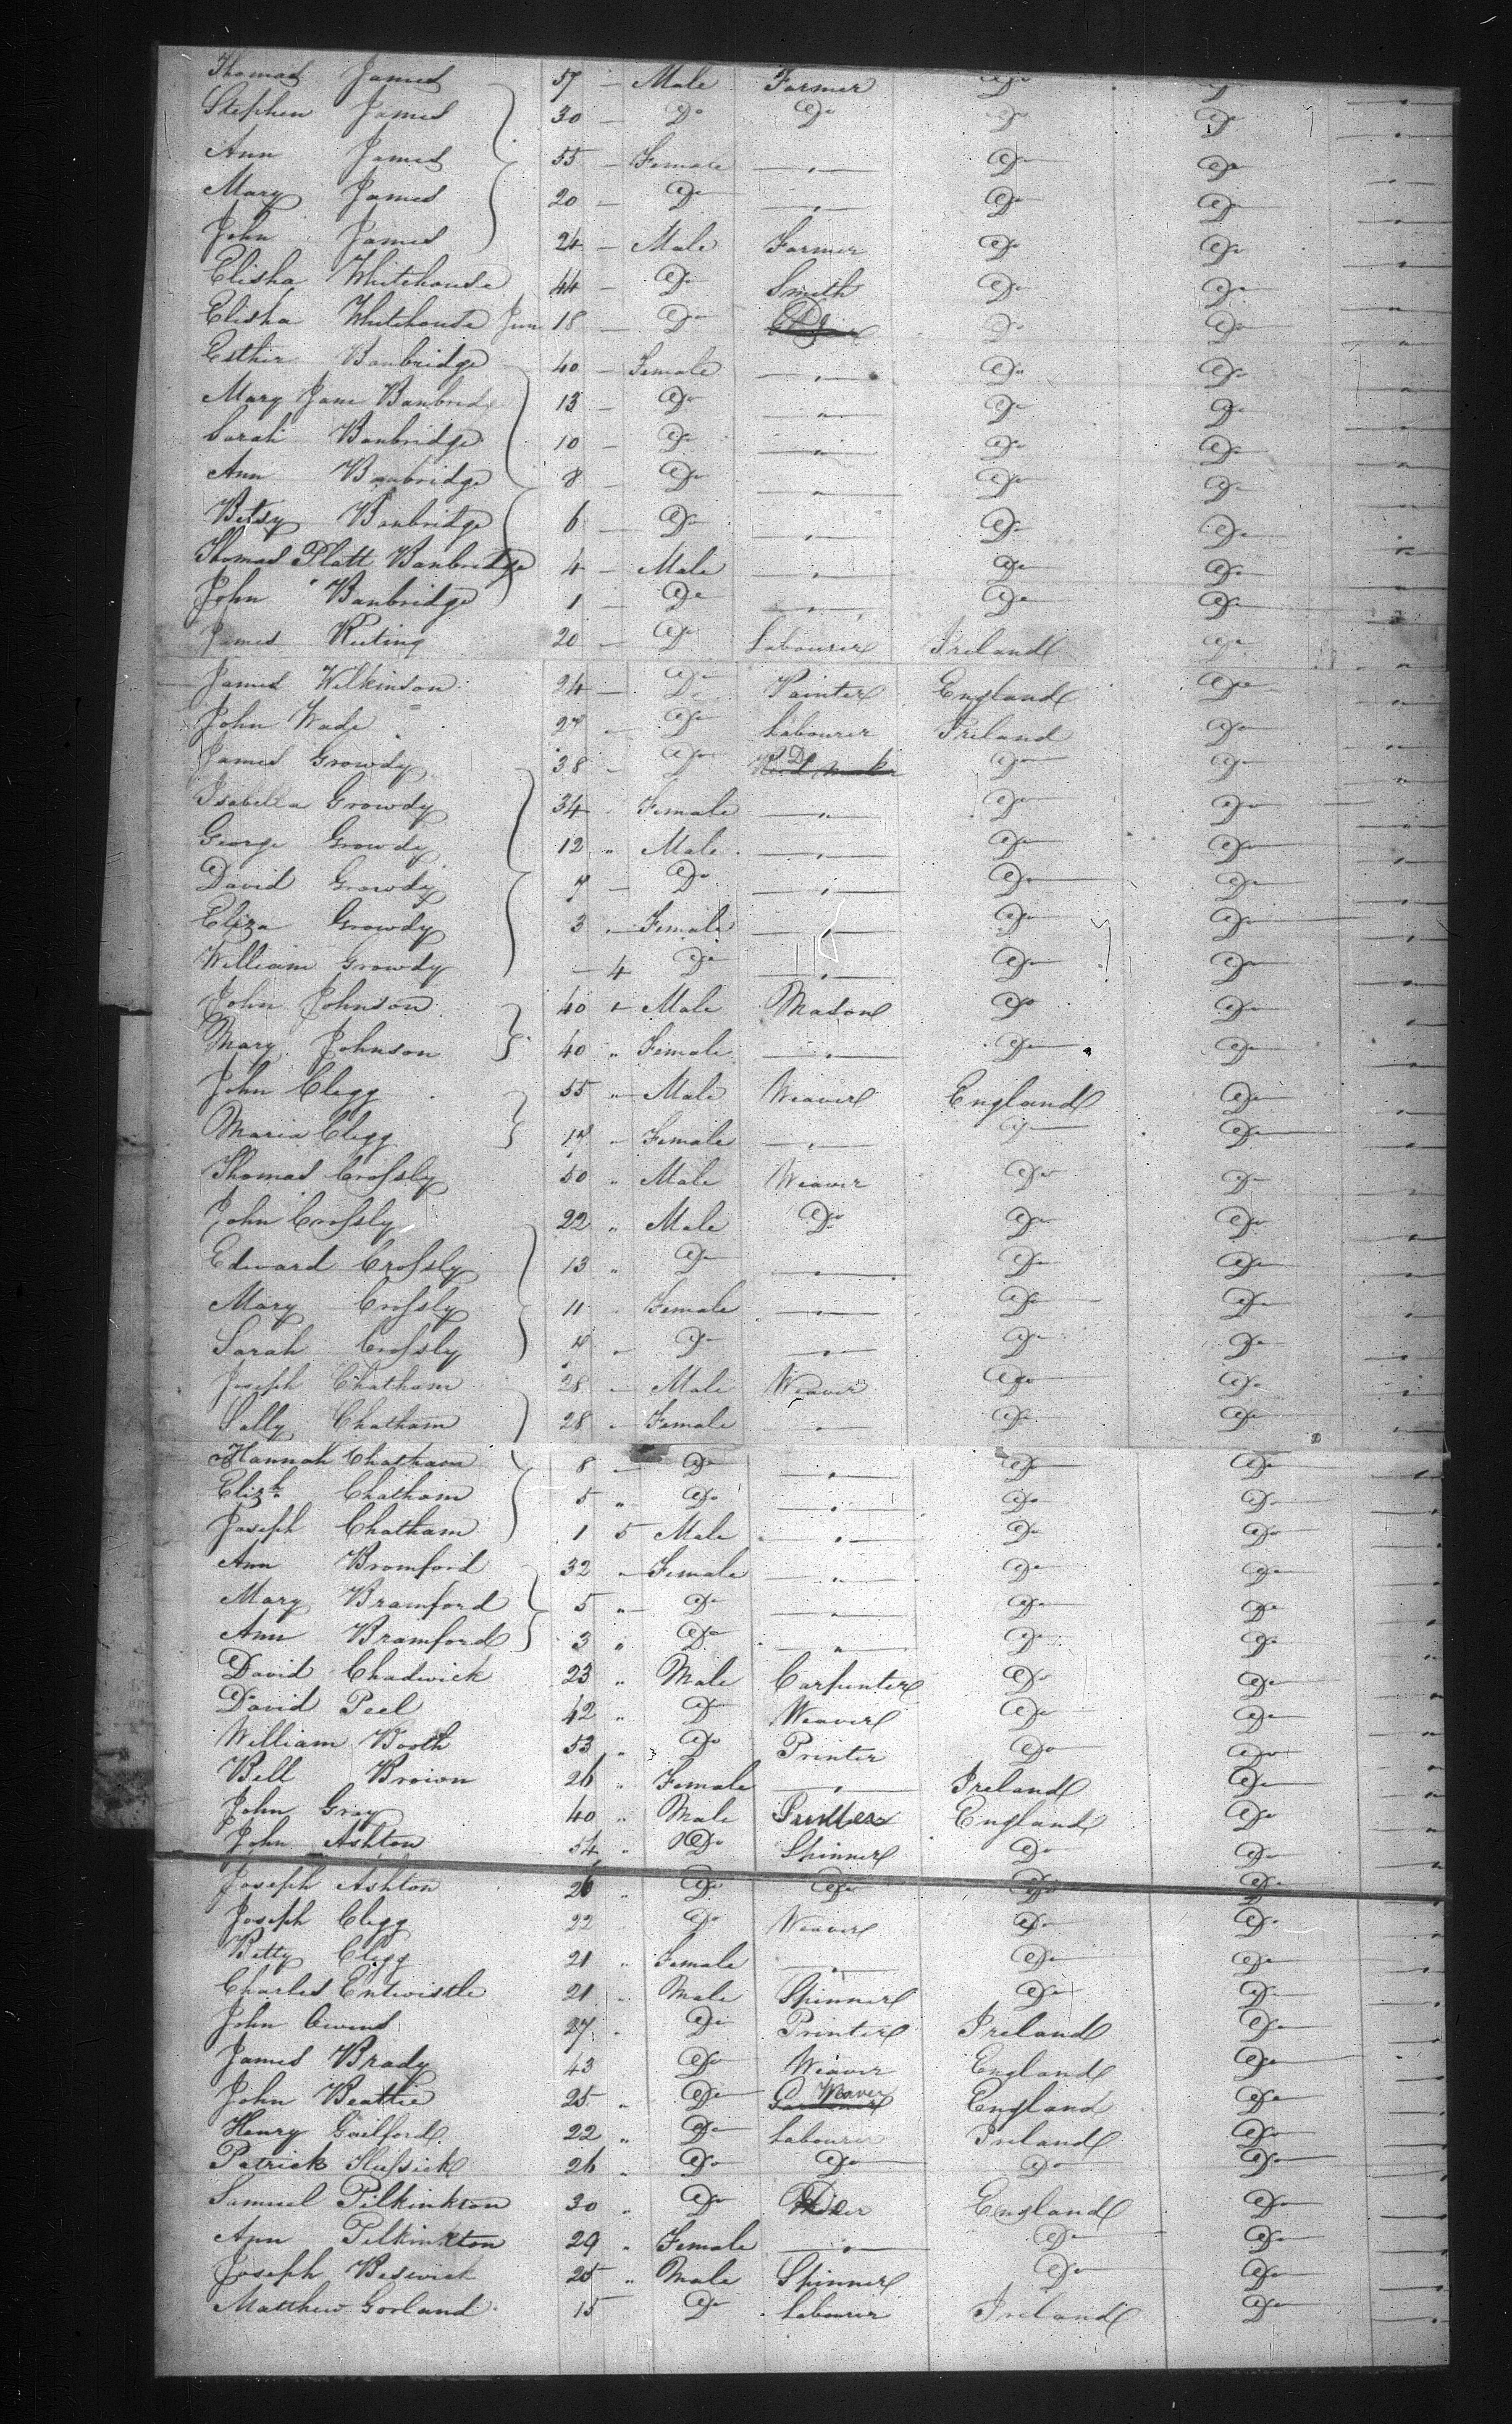 Thomas James 57 — Male Farmer Do Do "
Stephen James 30 — Do Do Do Do "
Ann James 55 — Female " Do Do "
Mary James 20 — Do " Do Do "
John James 24 — Male Farmer Do Do "
Elisha Whitehouse 44 — Do Smith Do Do "
Elisha Whitehouse Jun 18 — Do Do Do Do "
Esther Banbridge 40 — Female " Do Do "
Mary Jane Banbridge 13 — Do " Do Do "
Sarah Banbridge 10 — Do " Do Do "
Ann Banbridge 8 — Do " Do Do "
Betsy Banbridge 6 — Do " Do Do "
Thomas Platt Banbridge 4 — Male " Do Do "
John Banbridge 1 — Do " Do Do "
James Keting 20 — Do Labourer Ireland Do "
James Wilkinson 24 — Do Painter England Do "
John Wade 27 " Do Labourer Ireland Do "
James Growdy 38 — Do Do Do Do "
Isabella Growdy 34 Female " Do Do "
George Growdy 12 " Male " Do Do "
David Growdy 7 — Do " Do Do "
Eliza Growdy 3 — Female " Do Do "
William Growdy — 4 Do " Do Do "
John Johnson 40 " Male Mason Do Do "
Mary Johnson 40 " Female " Do Do "
John Clegg 55 " Male Weaver England Do "
Maria Clegg 17 — Female " Do Do "
Thomas Crofsly 50 " Male Weaver Do Do "
John Crofsly 22 " Male Do Do Do "
Edward Crofsly 13 " Do " Do Do "
Mary Crofsly 11 " Female " Do Do "
Sarah Crofsly 7 " Do " Do Do "
Joseph Chatham 28 — Male Weaver Do Do "
Sally Chatham 28 " Female " Do Do "
Hannah Chatham 8 — Do " Do Do "
Elizh Chatham 5 " Do " Do Do "
Joseph Chatham 1 5 Male " Do Do "
Ann Bromford 32 " Female " Do Do "
Mary Bramford 5 " Do " Do Do "
Ann Bramford 3 " Do " Do Do "
David Chadwick 23 " Male Carpenter Do Do "
David Peel 42 " Do Weaver Do Do "
William Booth 53 " Do Printer Do Do "
Bell Brown 26 " Female " Ireland Do "
John Gray 40 " Male England Do "
John Ashton 54 " Do Spinner Do Do "
Joseph Ashton 26 " Do Do Do Do "
Joseph Clegg 22 Do Weaver Do Do "
Betty Clegg 21 " Female " Do Do "
Charles Entwistle 21 " Male Spinner Do Do "
John Owens 27 " Do Printer Ireland Do "
James Brady 43 Do Weaver England Do "
John Beattie 25 " Do Weaver England Do "
Henry Guilford 22 " Do Labourer Ireland Do "
Patrick 26 " Do Do Do Do "
Samuel Pilkinkton 30 " Do England Do "
Ann Pilkinkton 29 " Female " Do Do "
Joseph Beswick 25 " Male Spinner Do Do "
Matthew Gorland 15 Do Labourer Ireland Do "